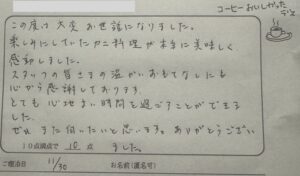 コーヒーおいしかったデス
この度は大変お世話になりました。
楽しみにしていたカニ料理が本当に美味しく
感動しました。
スタッフの皆さまの温かいおもてなしにも
心から感謝しております。
とても心地よい時間を過ごすことができま
した。
ぜひまた伺いたいと思います。ありがとうござい
10点満点で 10 点 ました。
ご宿泊日 11/30 お名前(匿名可)